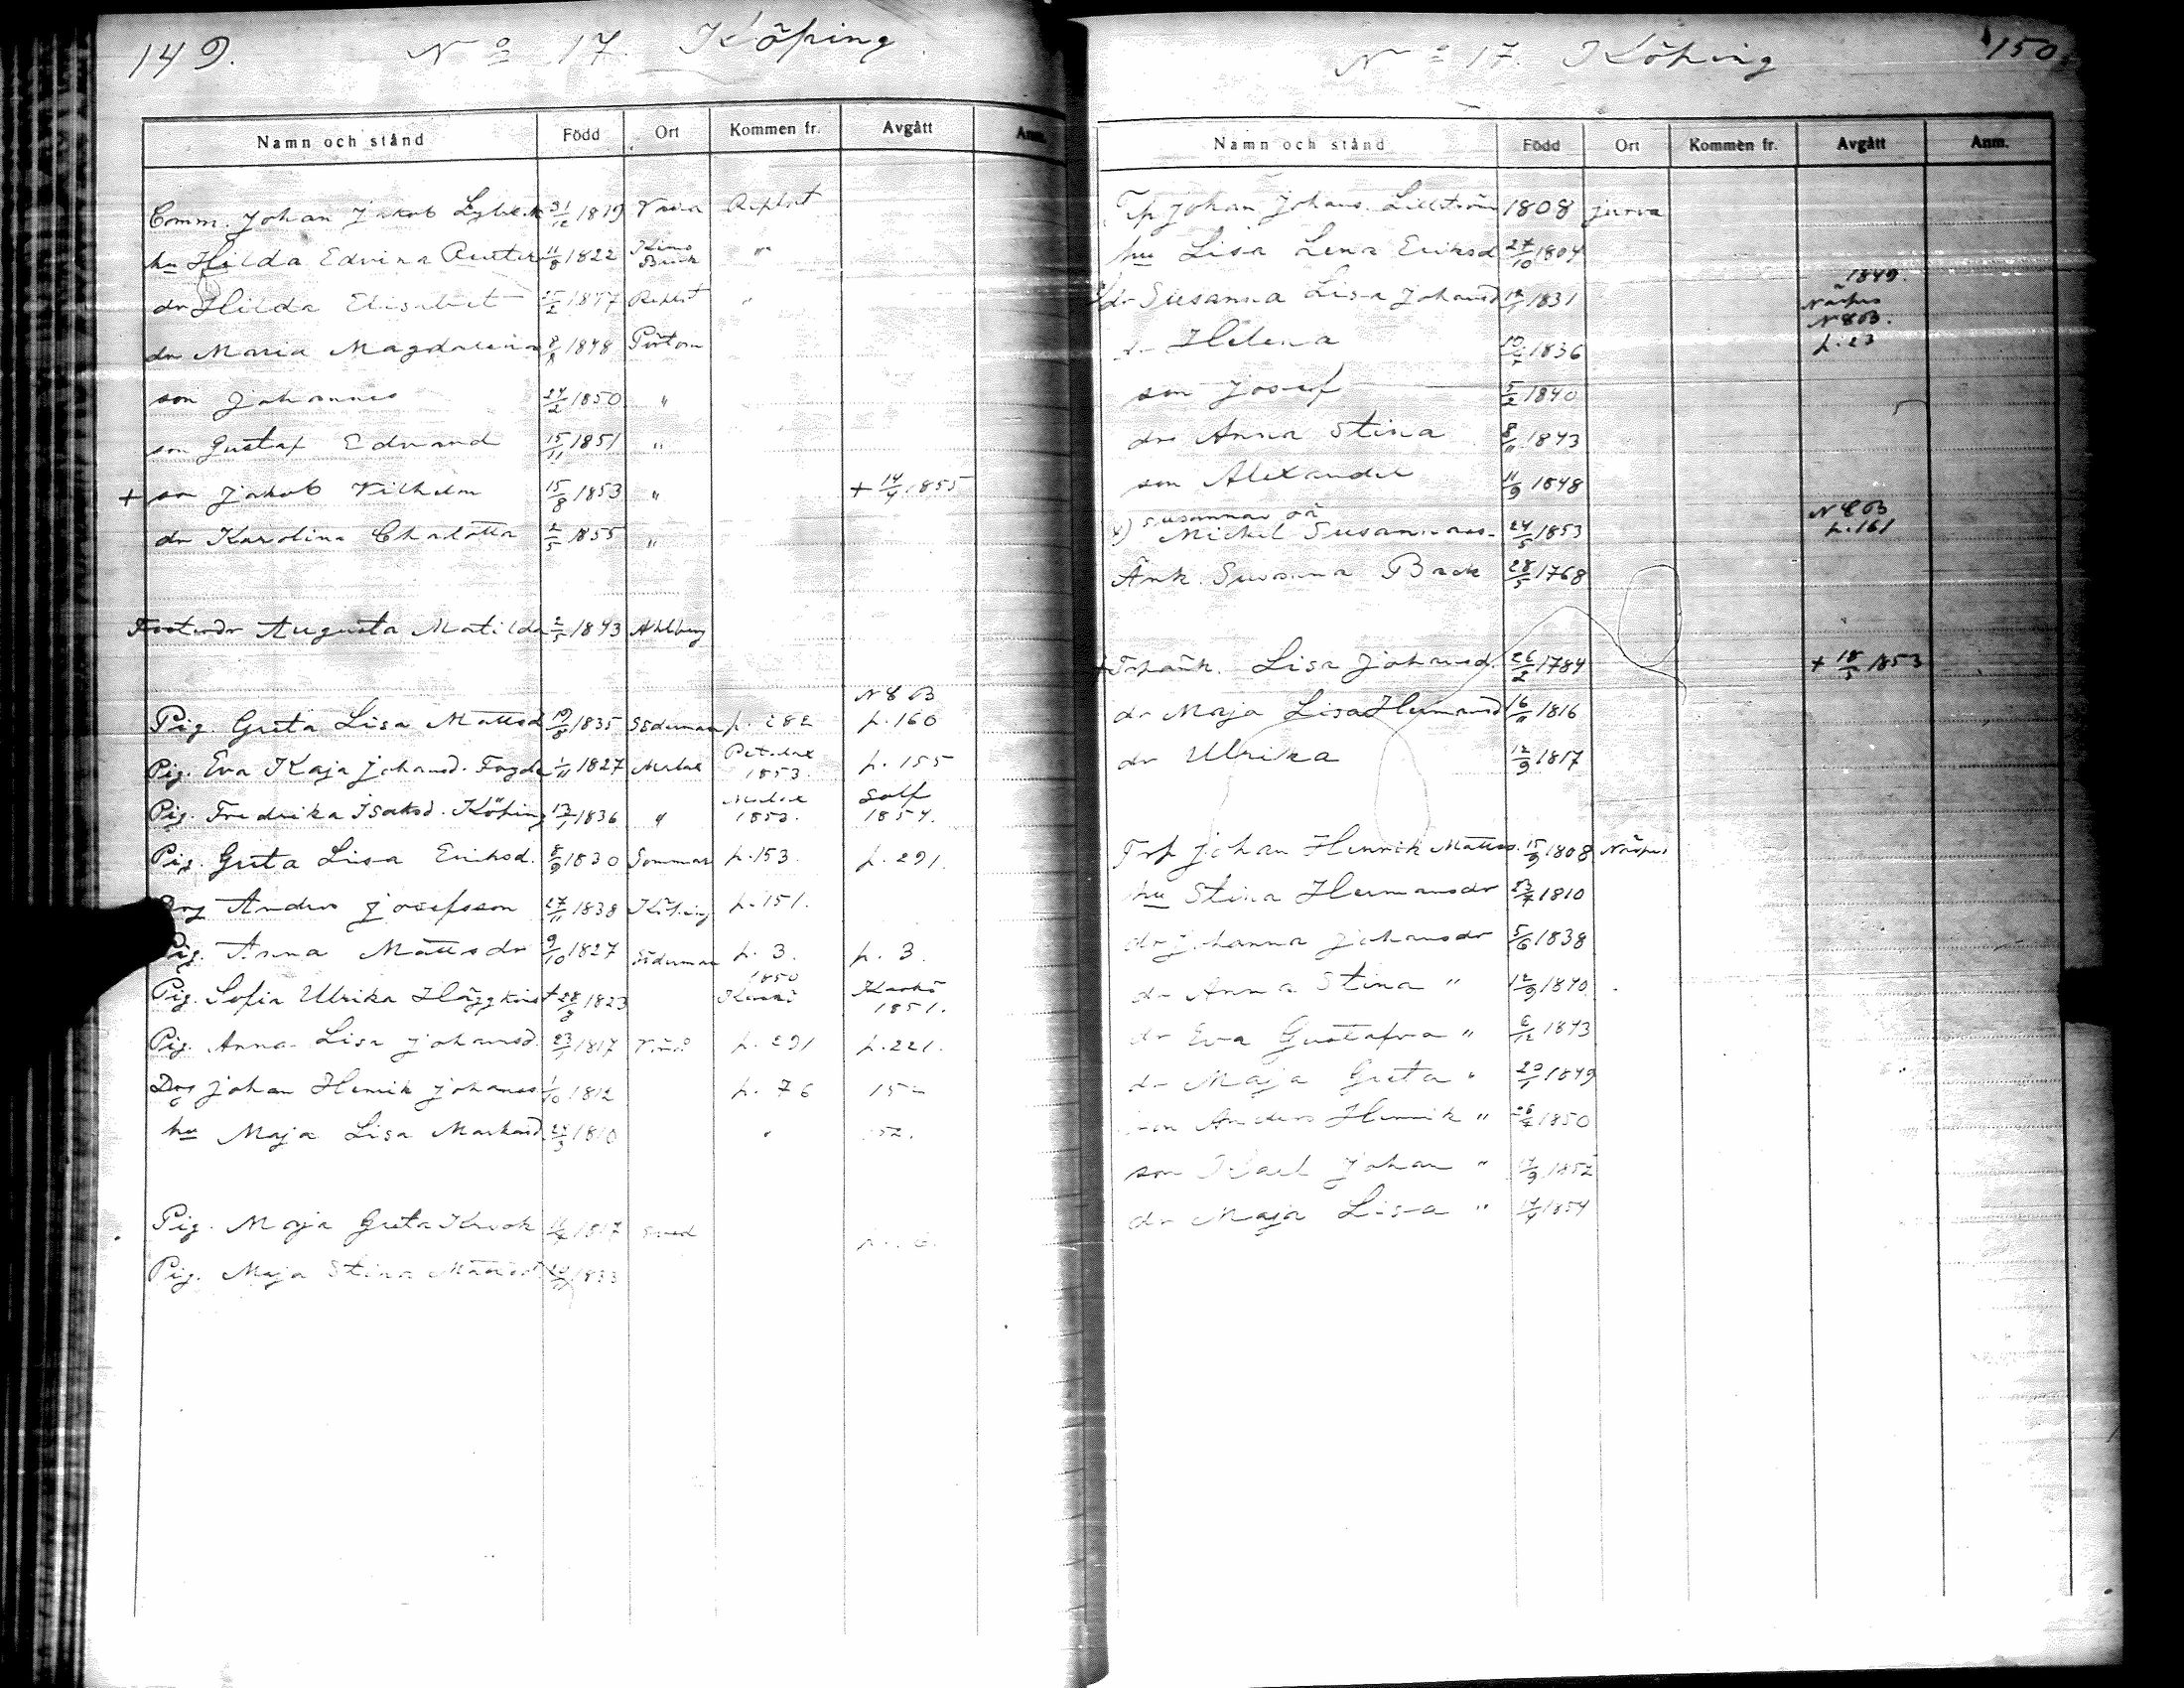 149. No 17. Köping
Namn och stånd Född Ort Kommen fr. Avgått Anm.
Comm. Johan Jakob Lybeck 31/12 1819 Vasa Replot
hu Hilda Edvina Reuter 11/8 1822 Kimo Bruk "
dr Hilda Elisabet 15/2 1847 Replot "
dr Maria Magdalena 1848 Pörtom
son Johannes 27/2 1850 "
son Gustaf Edvard 15/11 1851 "
+ son Jakob Vilhelm 15/8 1853 " + 14/4 1855
dr Karolina Charlotta 2/5 1855 "
Fosterdr Augusta Matilda 2/5 1843 Ahlberg
N 8 B
Pig. Greta Lisa Mattsd 19/8 1835 Söderman p. 282 p. 160
Pig. Eva Kaja Johansd. Fogde 1/11 1827 Malax Petalax 1853. p. 155
Pig. Fredrika Isaksd. Köping 13/1 1836 " Malax 1853. Solf 1854.
Pig. Greta Lisa Eriksd. 8/9 1830 Sommar p. 153. p. 291.
Drg Anders Josefsson 27/11 1838 Köping p. 151.
Pig. Anna Mattsdr 9/10 1827 Söderman p. 3. p. 3.
Pig. Sofia Ulrika Häggkvist 28/8 1823 1850 Kaskö Kaskö 1851.
Pig. Anna Lisa Johansd. 23/1 1817 p. 291 p. 221.
Drg Johan Henrik Johanss 1/10 1812 p. 76 152
hu Maja Lisa Marksd 1810 " 152.
Pig. Maja Greta Krook 1817
Pig. Maja Stina Mattsd 1833
No 17. Köping 150
Namn och stånd Född Ort Kommen fr. Avgått Anm.
Trp Johan Johans. Lillström 1808 Jurva
hu Lisa Lena Eriksd 27/10 1804
dr Susanna Lisa Johansd 1831 1849. Närpes
dr Helena 1836 N 8 B. p. 23
son Josef 5/2 1840
dr Anna Stina 8/11 1843
son Alexander 11/9 1848
Susannas oä
Mickel Susannas. 24/5 1853 N 8 B p. 161
Änk. Susanna Back 28/5 1768
+ Trpänk. Lisa Johansd. 26/2 1784 + 18/5 1853
dr Maja Lisa Hermansd 16/11 1816
dr Ulrika 12/9 1817
Trp Johan Henrik Mattss. 15/9 1808 Närpes
hu Stina Hermansdr 23/4 1810
dr Johanna Johansdr 5/6 1838
dr Anna Stina " 12/9 1840
dr Eva Gustafva " 6/12 1843
dr Maja Greta " 20/1 1849
son Anders Henrik " 1850
son Karl Johan " 17/9 1852
dr Maja Lisa " 1854